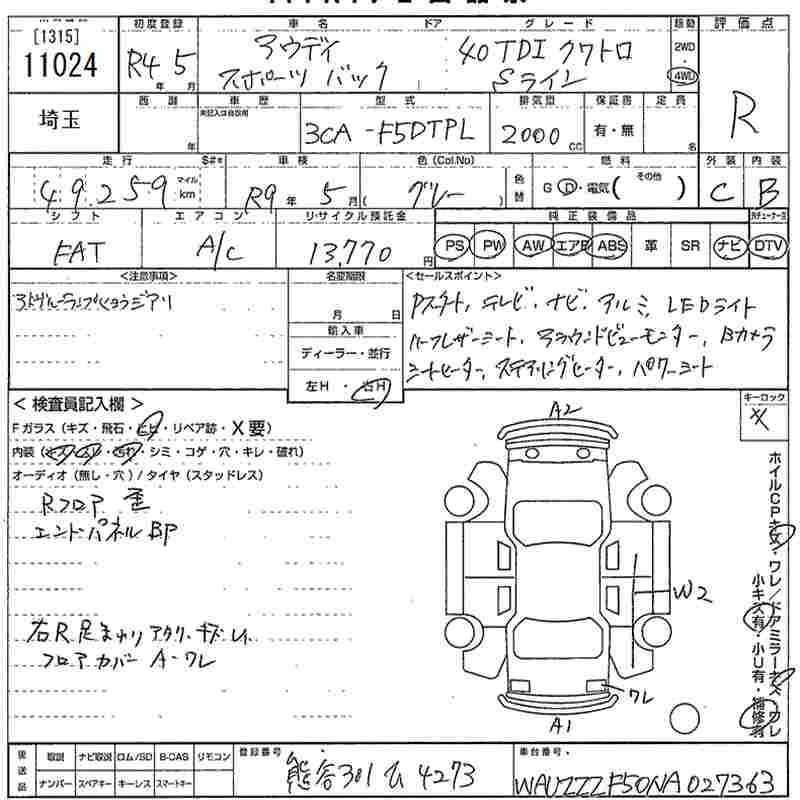 [1315]
11024
初度登録
R4 年 5 月
車名 ドア グレード
アウディ
スポーツ バック
40 TDI クワトロ
Sライン
駆動
2WD
4WD
評価点
R
埼玉
西暦 年
車歴
未記入は自家用
型式
3CA-F5DTPL
排気量
2000 CC
保証書
有・無
定員 名
走行 S#*
49.259 マイル km
車検
R9 年 5 月
色 (Col.No)
( グレー )
色替
燃料
G D・電気( その他 )
外装 内装
C B
シフト
FAT
エアコン
A/C
リサイクル預託金
13,770 円
純正装備品
PS PW AW エアB ABS 革 SR ナビ DTV
<注意事項>
名変期限
月 日
輸入車
ディーラー・並行
左H・右H
<セールスポイント>
Pスタート、テレビ、ナビ、アルミ、LEDライト
ハーフレザーシート、アラウンドビューモニター、Bカメラ
シートヒーター、ステアリングヒーター、パワーシート
キーロック
<検査員記入欄>
Fガラス (キズ・飛石・ヒビ・リペア跡・X要)
内装 (キズ・スレ・汚れ・シミ・コゲ・穴・キレ・破れ)
オーディオ (無し・穴) / タイヤ (スタッドレス)
Rフロア 歪
エンドパネル BP
右R 足まわり アタリ・キズ・レイ
フロア カバー A-ワレ
A2
W2
ワレ
A1
ホイルCPキズ・ワレ/ドアミラーキズ・ワレ
小キズ有・小U有・補修有
後送品
取説 ナビ取説 ロム/SD B-CAS リモコン
ナンバー スペアキー キーレス スマートキー
登録番号
熊谷 301 ム 4273
車台番号
WAUZZZF50NA027363